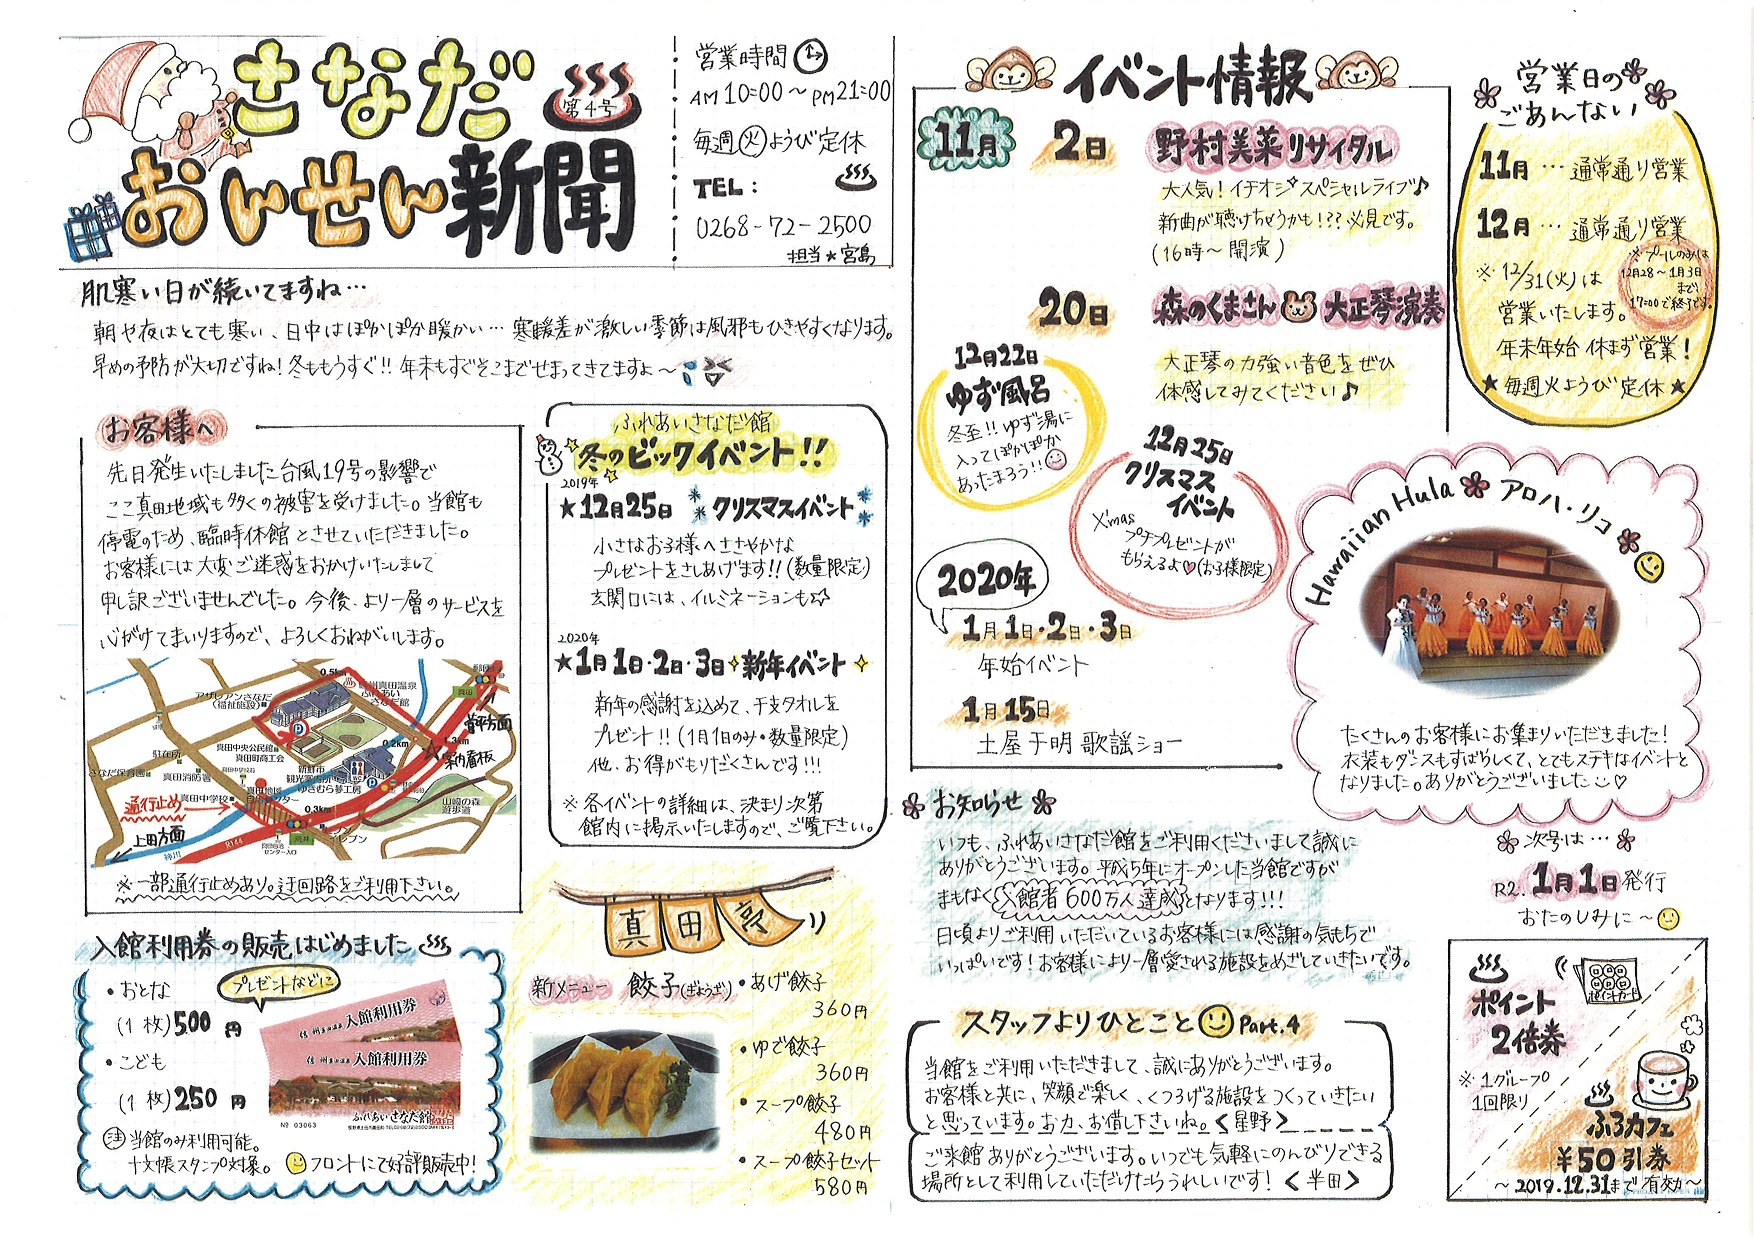 さなだ
おんせん新聞
第4号
営業時間
AM 10:00～PM 21:00
毎週火ようび定休
TEL:
0268-72-2500
担当★宮島
肌寒い日が続いてますね…
朝や夜はとても寒い、日中はぽかぽか暖かい…寒暖差が激しい季節は風邪もひきやすくなります。
早めの予防が大切ですね!冬ももうすぐ!!年末もすぐそこまでせまってきてますよ～
お客様へ
先日発生いたしました台風19号の影響で
ここ真田地域も多くの被害を受けました。当館も
停電のため、臨時休館とさせていただきました。
お客様には大変ご迷惑をおかけいたしまして
申し訳ございませんでした。今後、より一層のサービスを
心がけてまいりますので、よろしくおねがいします。
0.5km
アザレアンさなだ
(福祉施設)
真田温泉
ふれあい
さなだ館
菅平方面
駐在所
真田中央公民館
真田町商工会
0.2km
1.3km
案内看板
さなだ保育園
真田消防署
ゆきむら夢工房
真田中学校
通行止め
0.3km
山崎の森
遊歩道
上田方面
R144
※一部通行止めあり。迂回路をご利用下さい。
ふれあいさなだ館
冬のビックイベント!!
2019年
★12月25日 クリスマスイベント
小さなお子様へささやかな
プレゼントをさしあげます!!(数量限定)
玄関口には、イルミネーションも☆
2020年
★1月1日・2日・3日 新年イベント
新年の感謝を込めて、干支タオルを
プレゼント!!(1月1日のみ・数量限定)
他、お得がもりだくさんです!!!
※各イベントの詳細は、決まり次第
館内に掲示いたしますので、ご覧下さい。
入館利用券の販売はじめました
プレゼントなどに
・おとな
(1枚)500円
・こども
(1枚)250円
入館利用券
入館利用券
ふれあいさなだ館
No 03063
注 当館のみ利用可能。
十文帳スタンプ対象。 フロントにて好評販売中!
真田亭
新メニュー 餃子(ぎょうざ)
・あげ餃子
360円
・ゆで餃子
360円
・スープ餃子
480円
・スープ餃子セット
580円
イベント情報
11月 2日 野村美菜リサイタル
大人気!イチオシスペシャルライブ♪
新曲が聴けちゃうかも!??必見です。
(16時～開演)
20日 森のくまさん 大正琴演奏
大正琴の力強い音色をぜひ
体感してみてください♪
12月22日
ゆず風呂
冬至!!ゆず湯に
入ってぽかぽか
あったまろう!!
12月25日
クリスマス
イベント
X'mas
プチプレゼントが
もらえるよ♡(お子様限定)
2020年
1月1日・2日・3日
年始イベント
1月15日
土屋于明 歌謡ショー
営業日の
ごあんない
11月…通常通り営業
12月…通常通り営業
※12/31(火)は
営業いたします。
※プールのみは
12月28～1月3日
まで
17:00で終了です。
年末年始休まず営業!
★毎週火ようび定休★
Hawaiian Hula アロハ・リコ
たくさんのお客様にお集まりいただきました!
衣装もダンスもすばらしくて、とてもステキなイベントと
なりました。ありがとうございました♡
お知らせ
いつも、ふれあいさなだ館をご利用くださいまして誠に
ありがとうございます。平成5年にオープンした当館ですが
まもなく入館者600万人達成となります!!!
日頃よりご利用いただいているお客様には感謝の気もちで
いっぱいです!お客様により一層愛される施設をめざしていきたいです。
スタッフよりひとこと Part.4
当館をご利用いただきまして、誠にありがとうございます。
お客様と共に、笑顔で楽しく、くつろげる施設をつくっていきたい
と思っています。お力、お借し下さいね。<星野>
ご来館ありがとうございます。いつでも気軽にのんびりできる
場所として利用していただけたらうれしいです!<半田>
次号は…
R2. 1月1日発行
おたのしみに～
ポイントカード
ポイント
2倍券
※1グループ
1回限り
ふろカフェ
¥50引券
～2019.12.31まで有効～